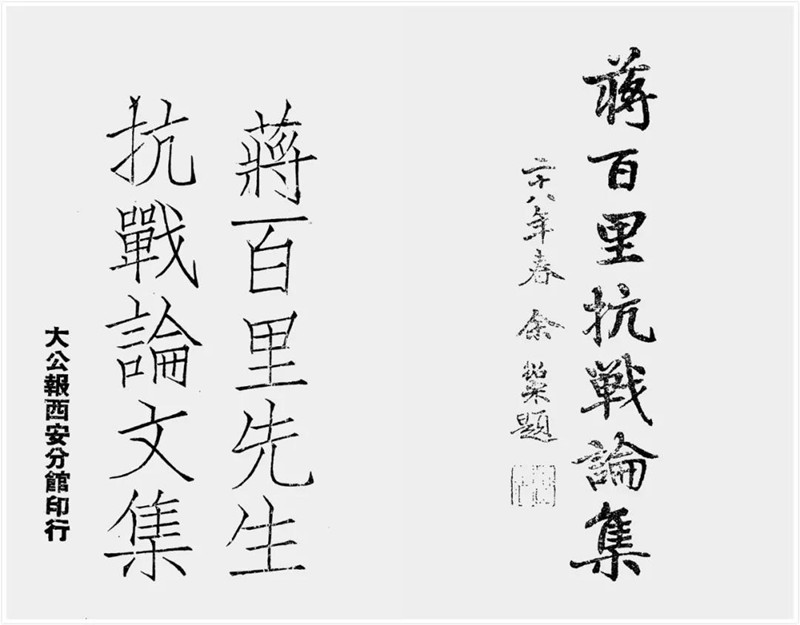 蔣百里抗戰論集
二十八年春 余 題
蔣百里先生
抗戰論文集
大公報西安分館印行